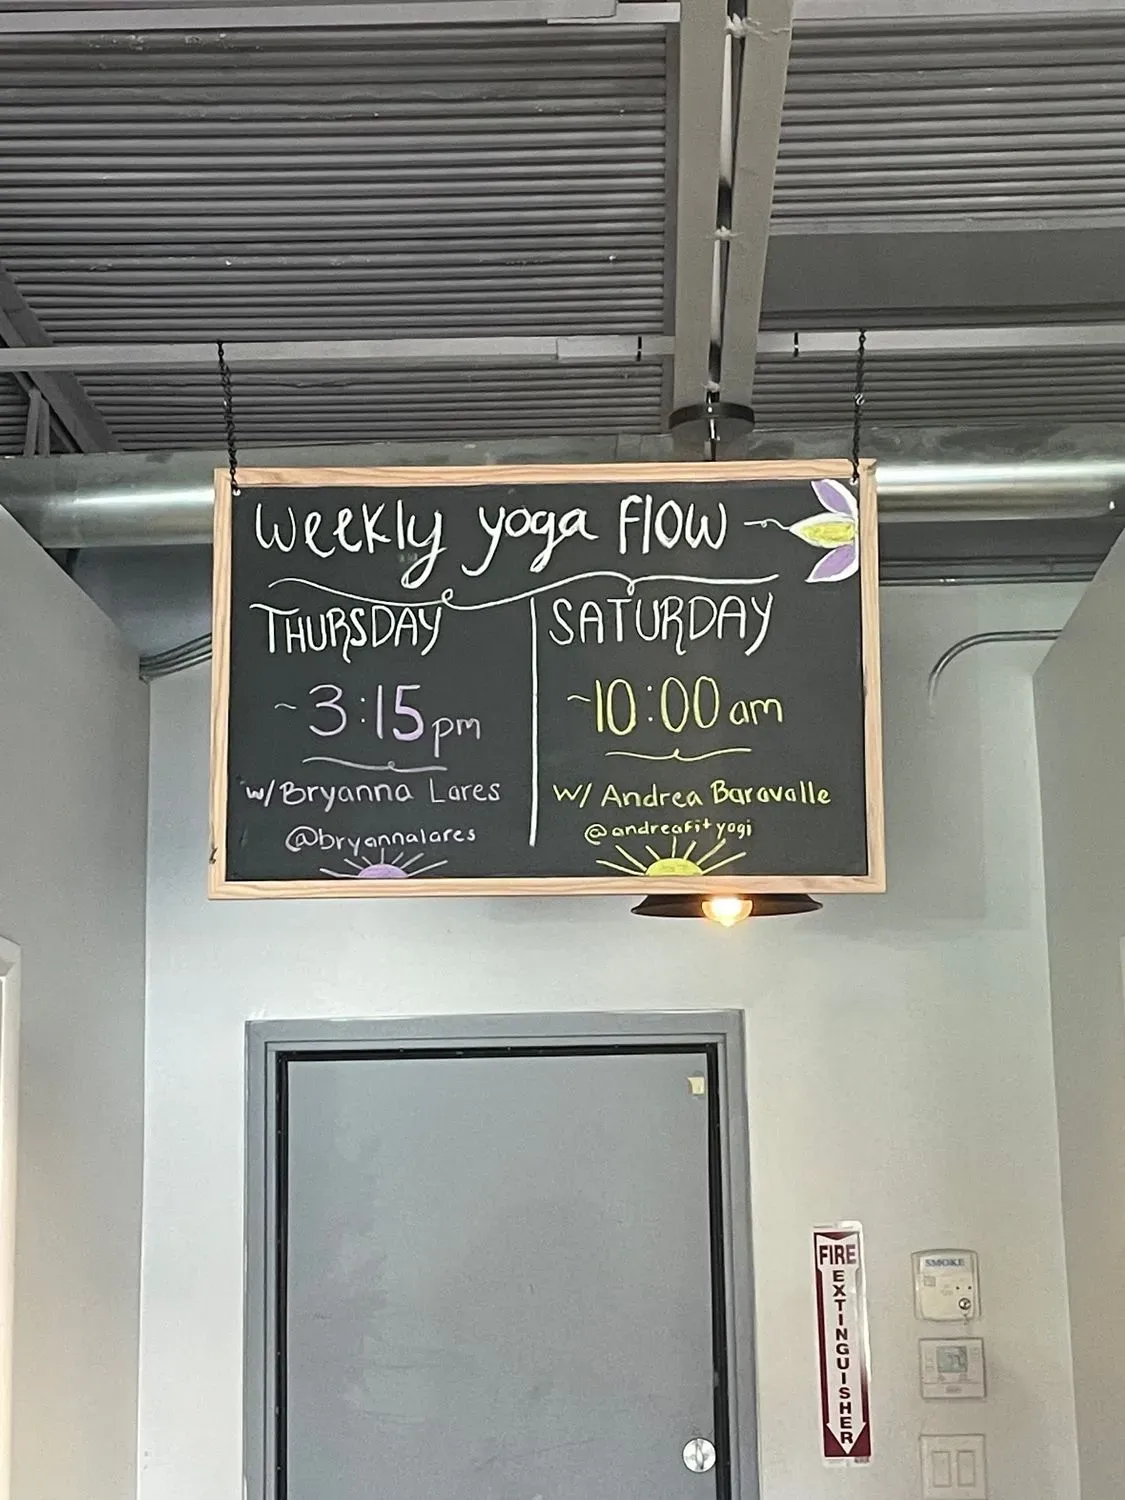 weekly yoga Flow
THURSDAY
~3:15pm
w/ Bryanna Lares
@bryannalares
SATURDAY
~10:00am
w/ Andrea Baravalle
@andreafityogi
FIRE
EXTINGUISHER
SMOKE